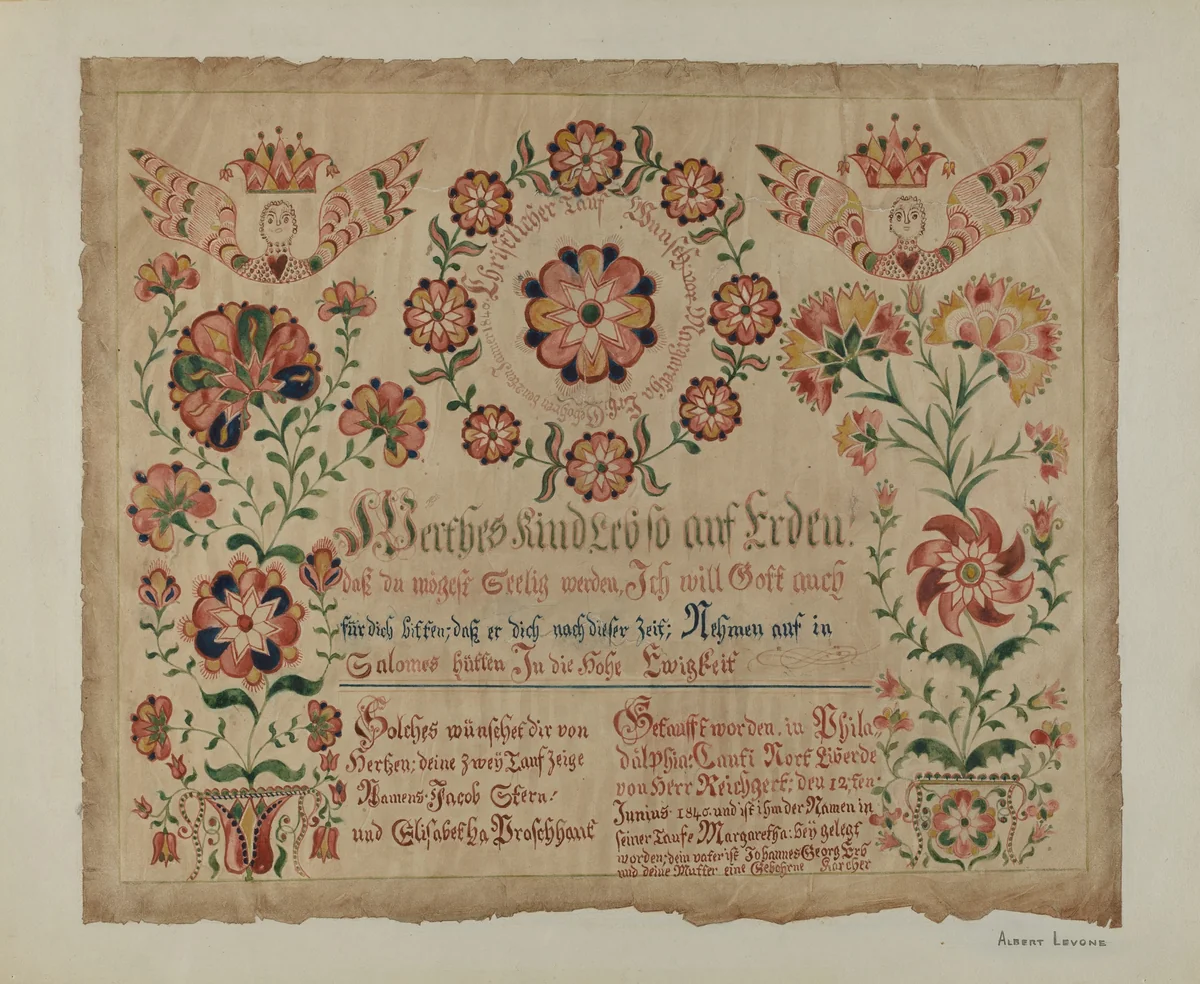 Christlicher Tauf Wunsch vor Margaretha Erb. Gebohren den 26ten Januer 1840.
Werthes Kind Leb so auf Erden!
daß du mögest Seelig werden, Ich will Gott auch
für dich bitten; daß er dich nach dieser Zeit; Nehmen auf in
Salomes hütten In die Hohe Ewigkeit
Solches wünschet dir von
Hertzen; deine zweÿ Tauf Zeige
Namens: Jacob Stern!
und Elisabetha Proschhant
Getauft worden, in Phila
dälphia: Caunti Nort Liberde
von Herr Reichgert; den 12;ten
Junius 1840. und ist ihm der Namen in
seiner Taufe Margaretha: beÿ gelegt
worden; dein vater ist Johannes Georg Erb
und deine Mutter eine Gebohrne Karcher
ALBERT LEVONE